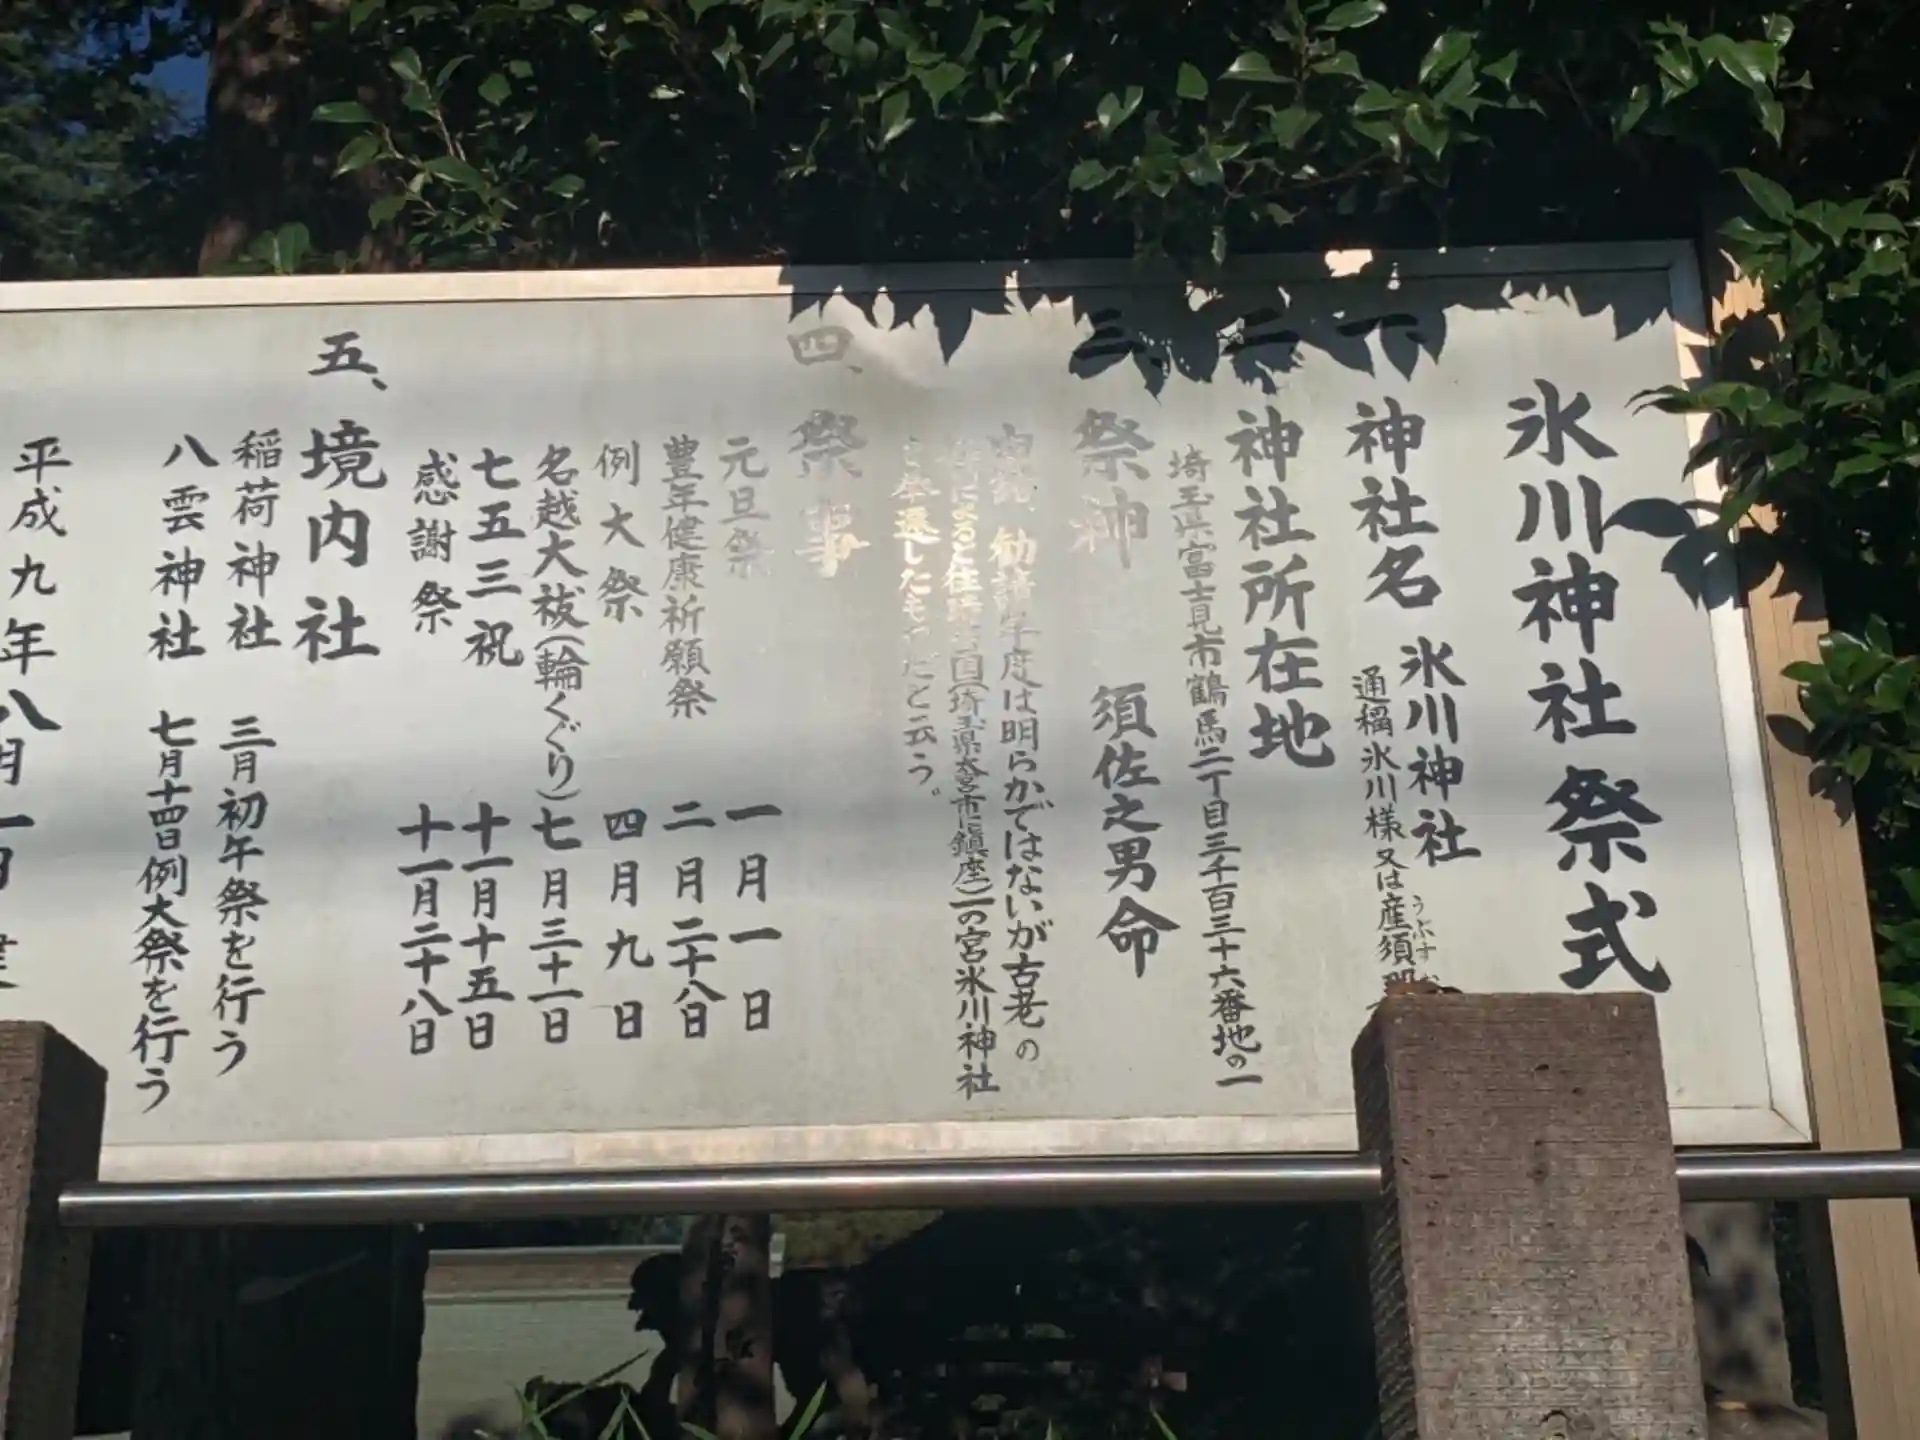 氷川神社祭式
一、神社名 氷川神社
通稱氷川様又は産須
うぶす
二、神社所在地
埼玉県富士見市鶴馬二丁目三千百三十六番地の一
三、祭神 須佐之男命
勧請年度は明らかではないが古老の
によると往時 国(埼玉県大宮市に鎮座)一の宮氷川神社
奉還したも だと云う。
四、祭事
元旦祭 一月一日
豊年健康祈願祭 二月二十八日
例大祭 四月九日
名越大祓(輪くぐり)七月三十一日
七五三祝 十一月十五日
感謝祭 十一月二十八日
五、境内社
稲荷神社 三月初午祭を行う
八雲神社 七月十四日例大祭を行う
平成九年八月一日